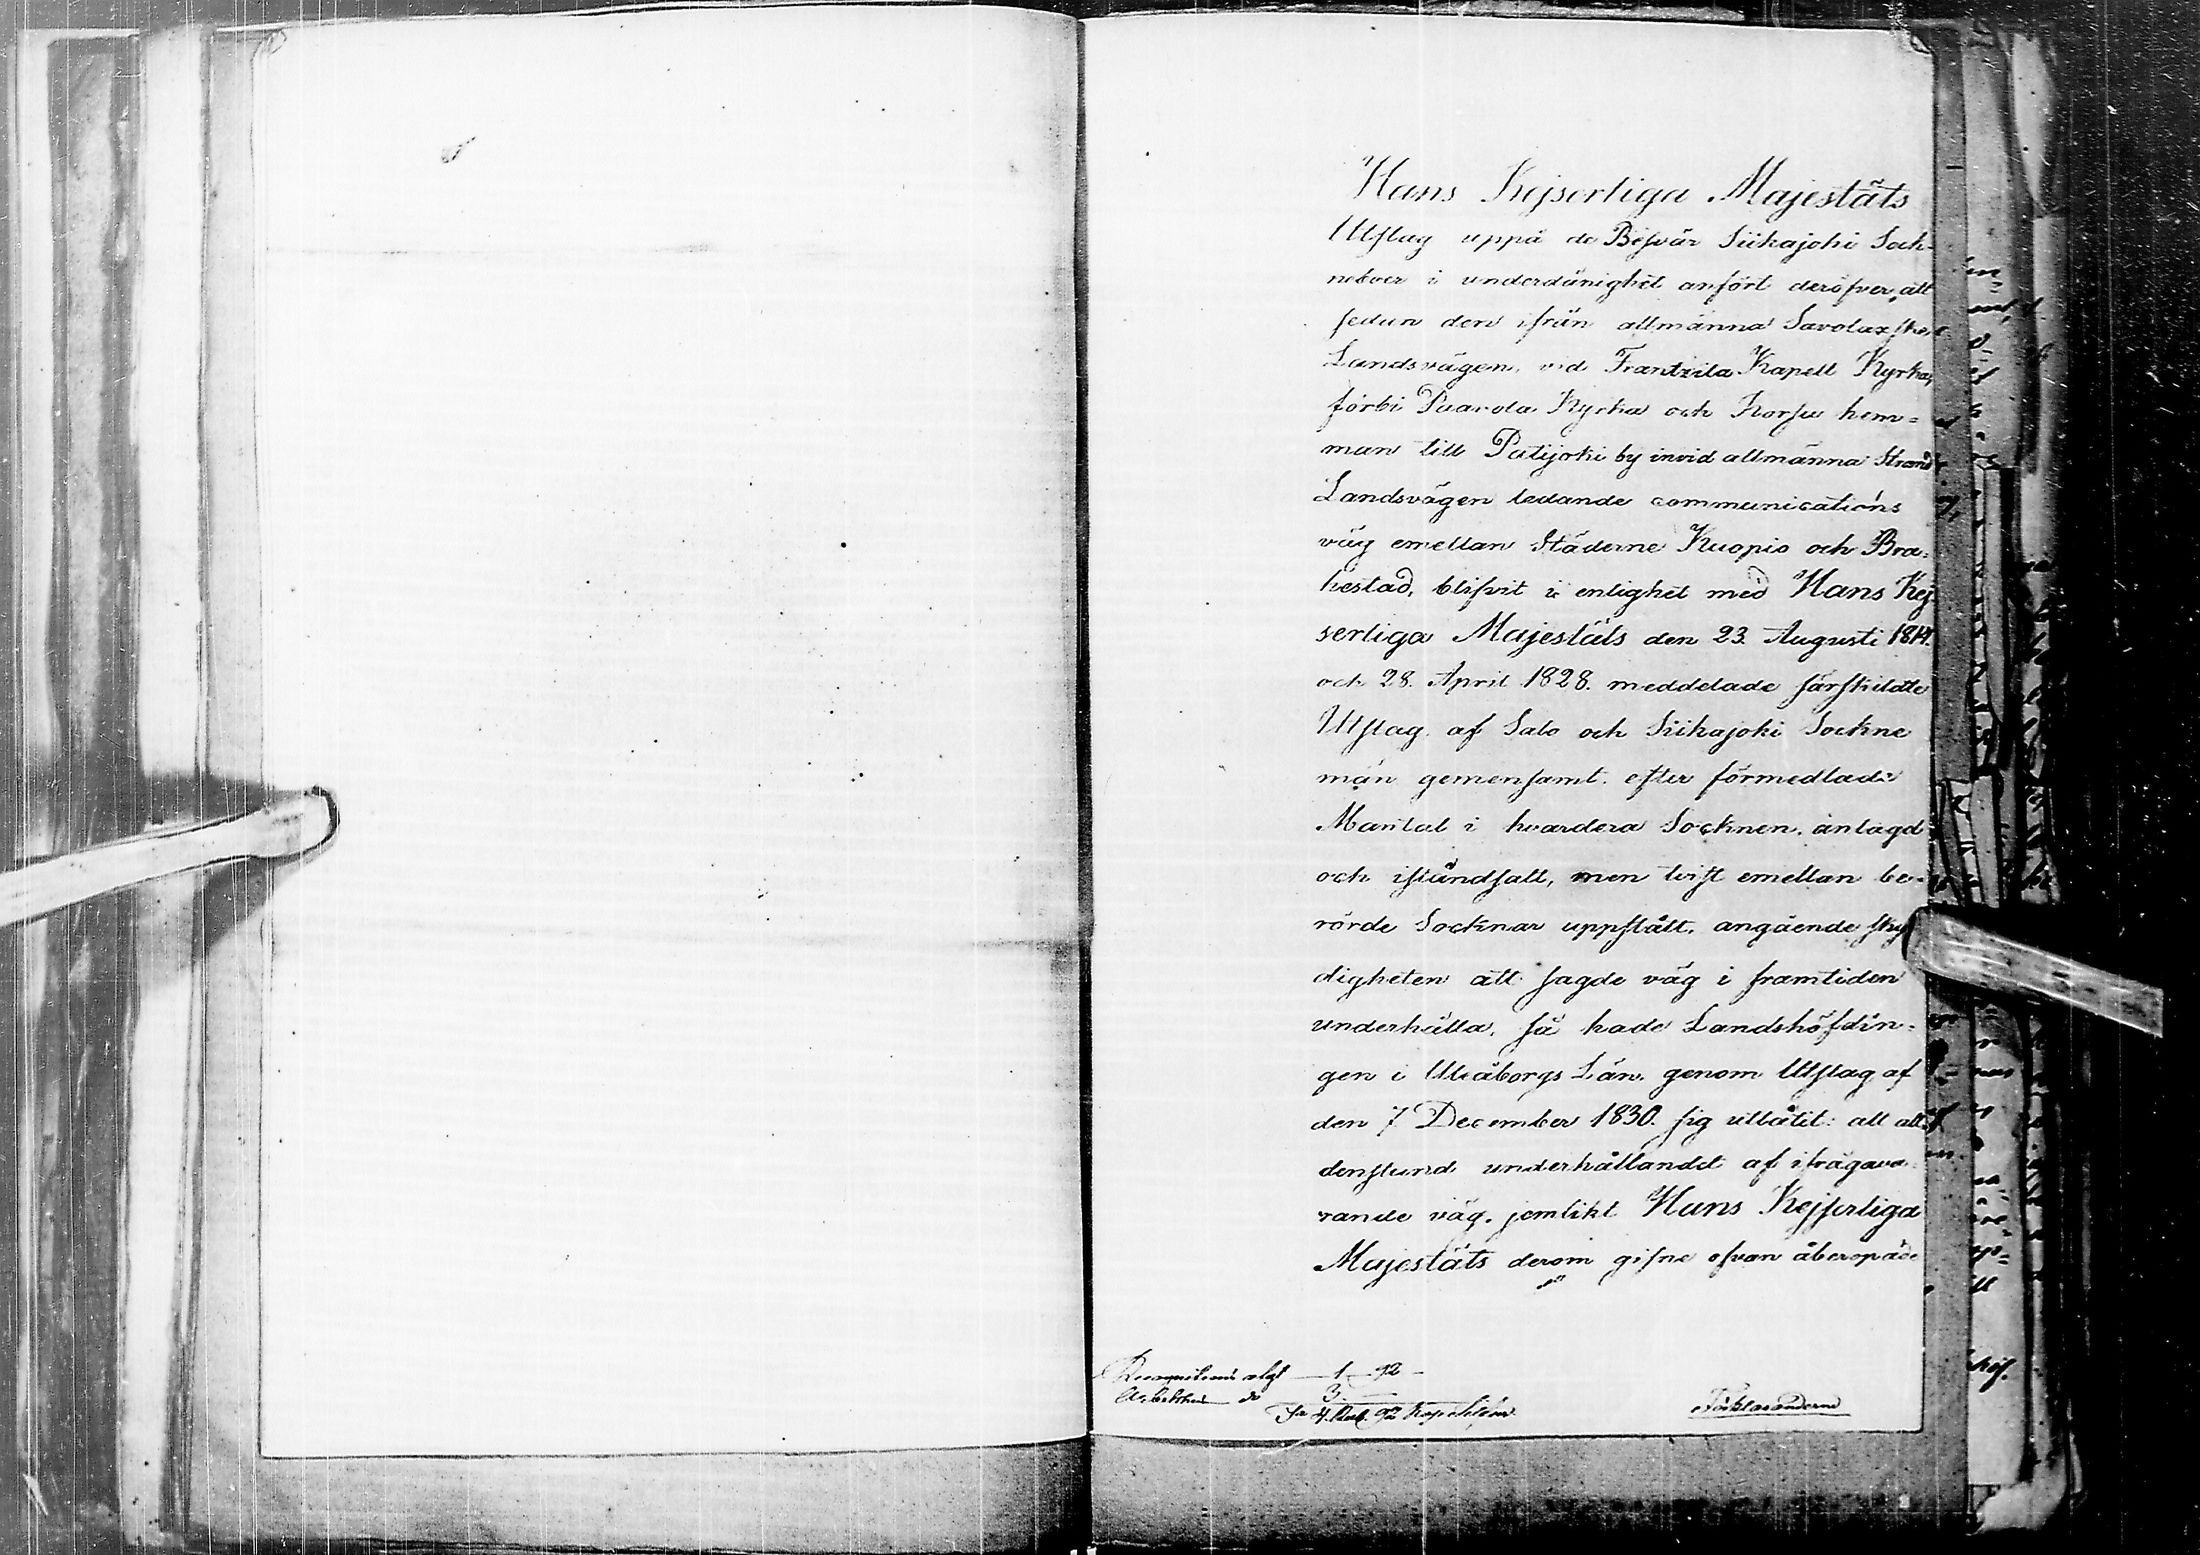 Hans Kejserliga Majestäts
Utslag uppå de Besvär Siikajoki Sock-
neboer i underdånighet anfört deröfver, att
sedan den ifrån allmänna Savolaxska
Landsvägen, vid Frantzila Kapell Kyrka,
förbi Paavola Kyrka och Korsu hem=
man till Patijoki by invid allmänna Strand
Landsvägen ledande communications
väg emellan Städerne Kuopio och Bra-
hestad, blifvit i enlighet med Hans Kej-
serliga Majestäts den 23. Augusti 1814.
och 28. April 1828. meddelade särskildte
Utslag af Salo och Siikajoki Sockne
män gemensamt efter förmedlade
Mantal i hvardera Socknen, anlagd
och iståndsatt, men tvist emellan be-
rörde Socknar uppstått, angående sky
digheten att sagde väg i framtiden
underhålla, så hade Landshöfdin-
gen i Uleåborgs Län, genom Utslag af
den 7 December 1830. sig utlåtit: att all
denstund underhållandet af ifrågava-
rande väg, jemlikt Hans Kejserliga
Majestäts derom gifne ofvan åberopade
1 92
3
4. 92 Kop Silfver